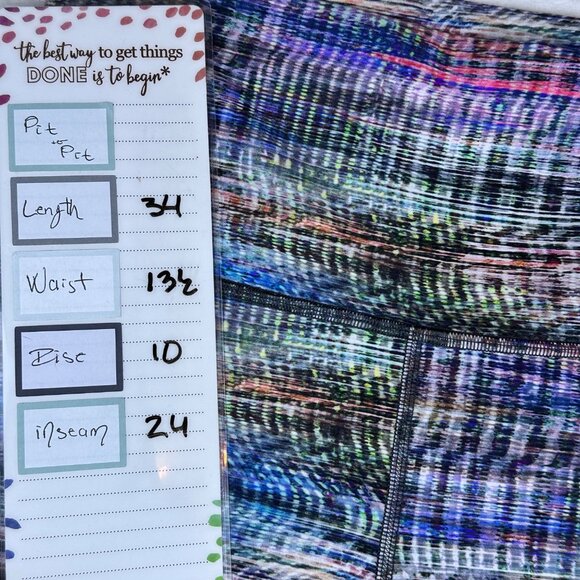 the best way to get things
DONE is to begin*
Pit
to
Pit
Length 34
Waist 13½
Rise 10
inseam 24